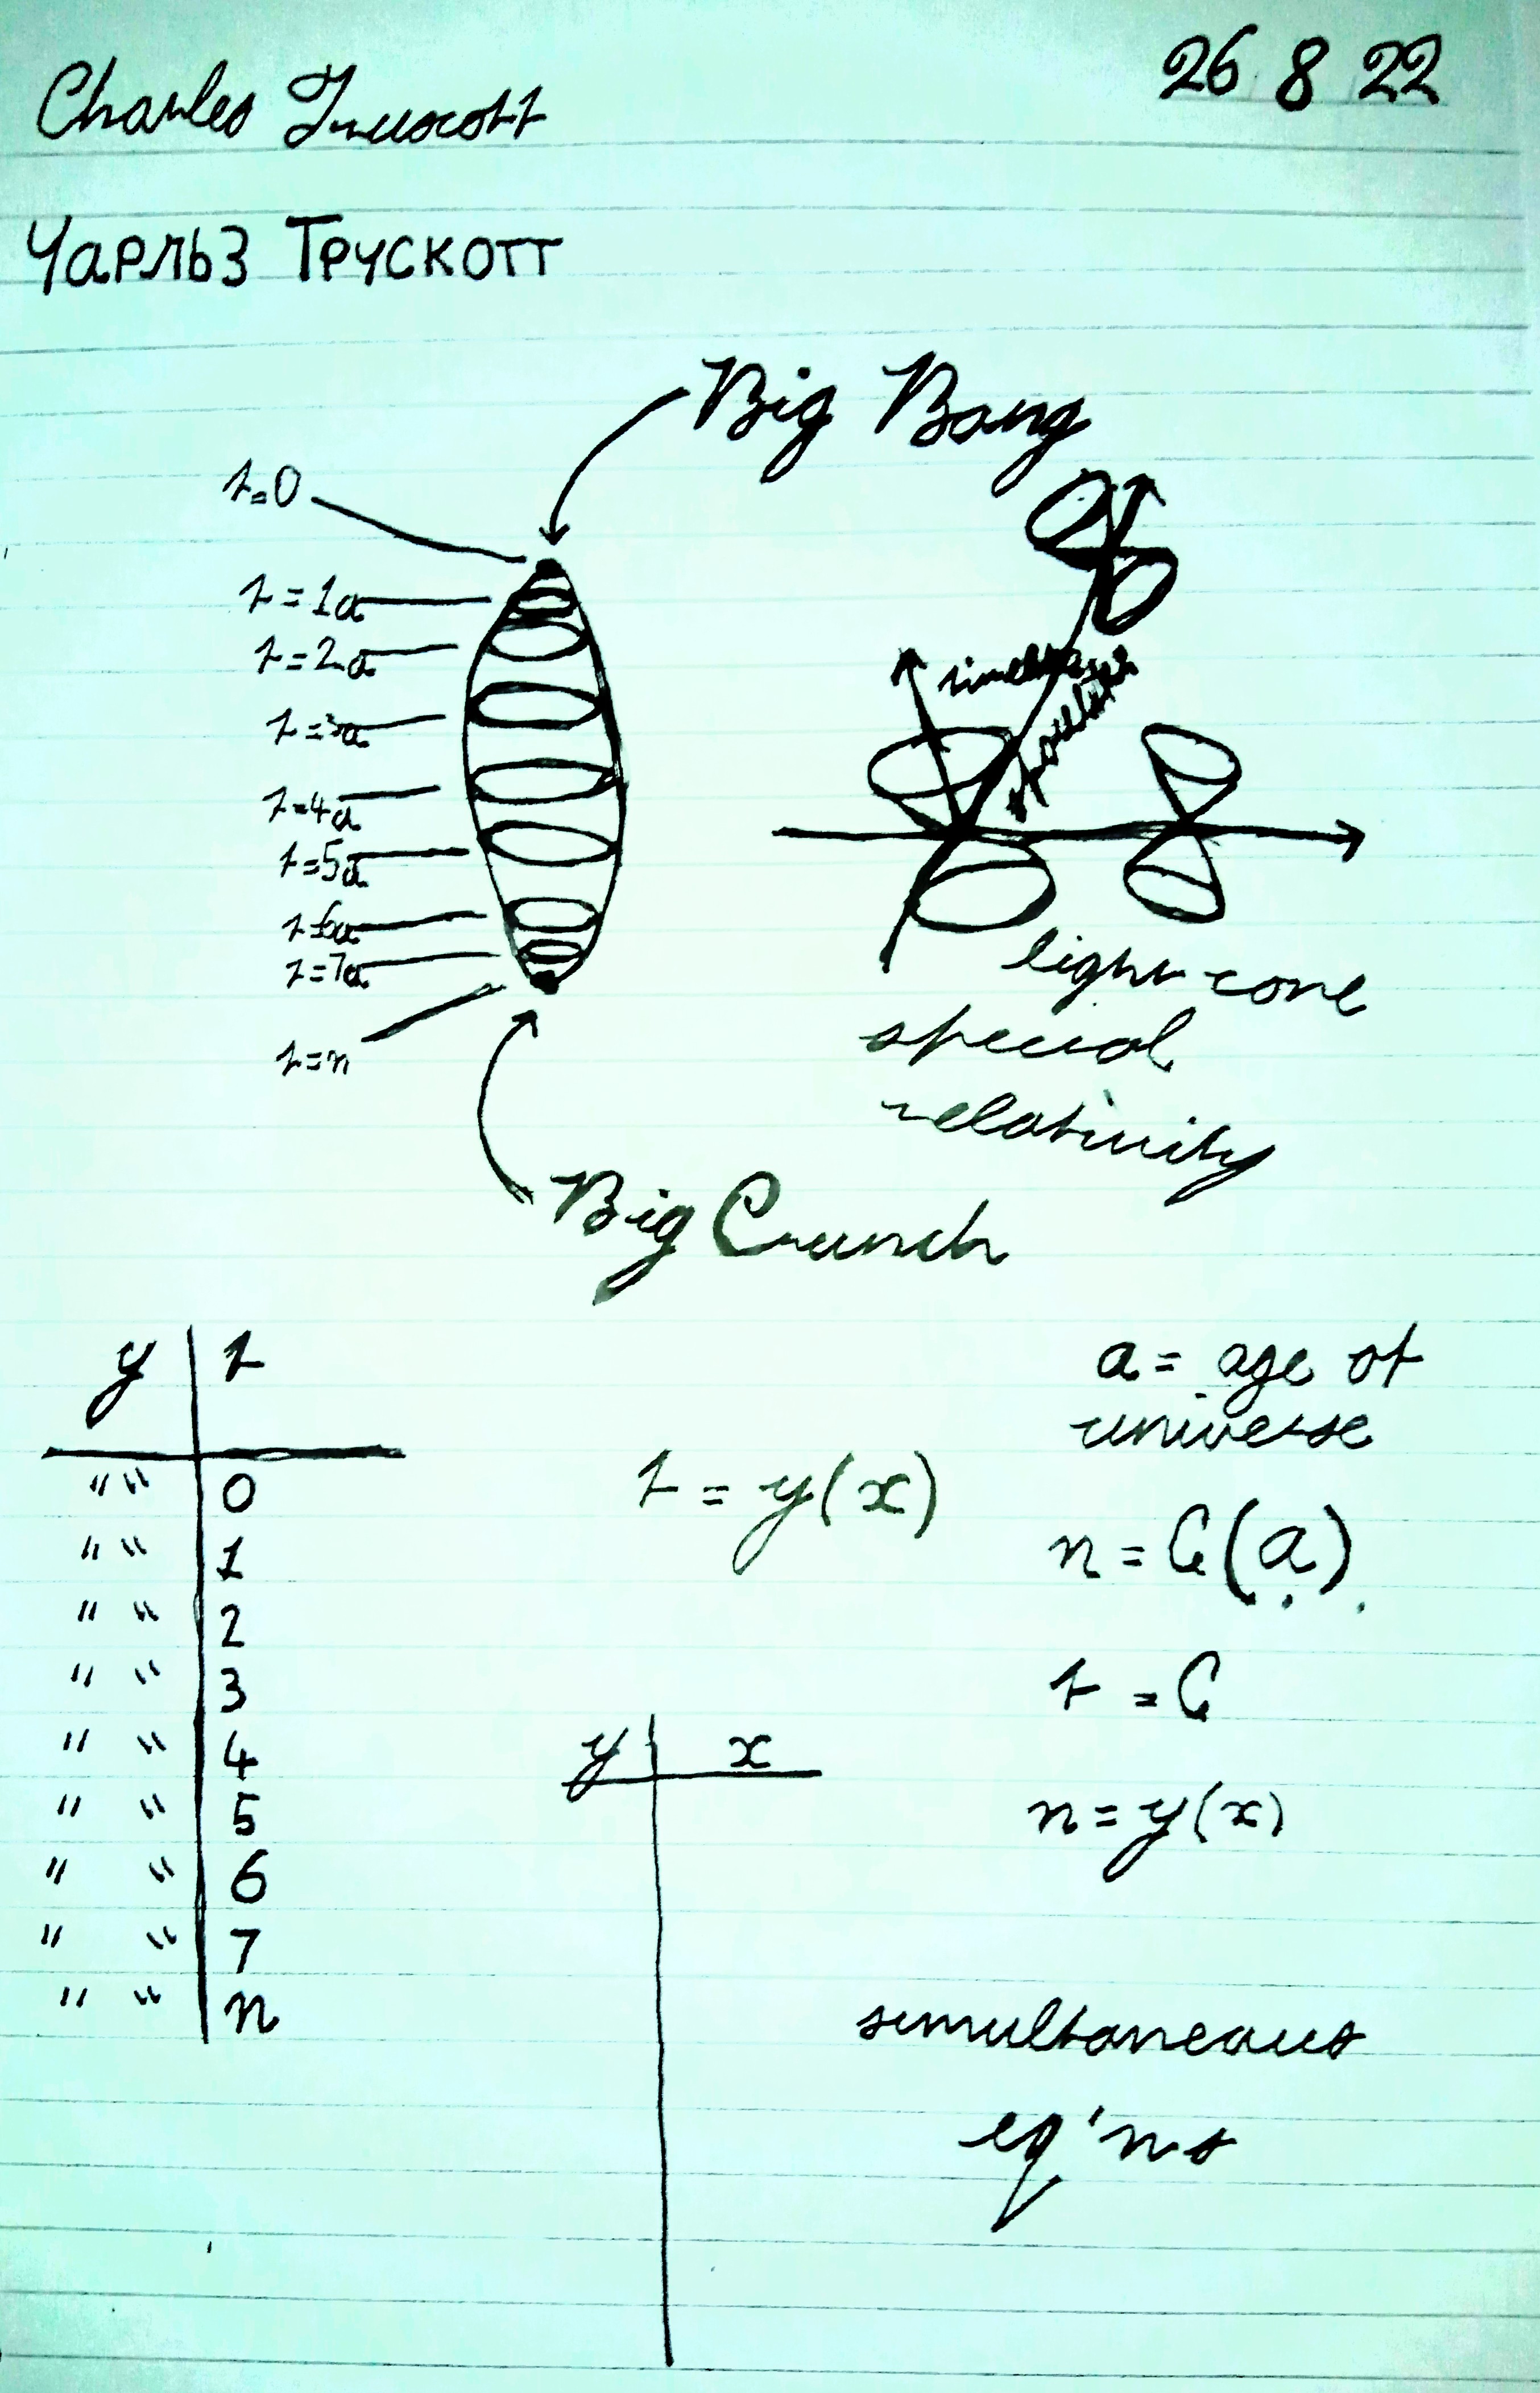 Charles Truscott
26 8 22
Чарльз Трускотт
Big Bang
t=0
t=1a
t=2a
t=3a
t=4a
t=5a
t=6a
t=7a
t=n
timelike
spacelike
light cone
special
relativity
Big Crunch
y t
"" 0
"" 1
" " 2
" " 3
" " 4
" " 5
" " 6
" " 7
" " n
t = y(x)
a = age of
universe
n = C(a)
t = C
n = y(x)
y x
simultaneous
eq'ns